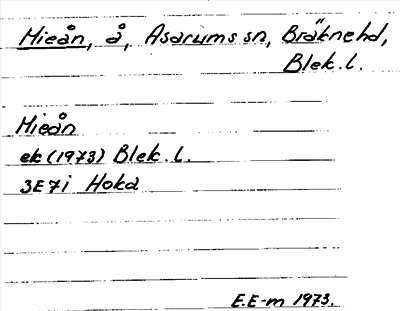 Mieån, å, Asarums sn, Bräknehd,
Blek. l.
Mieån
ek (1973) Blek. l.
3E7i Hoka
E.E-m 1973.